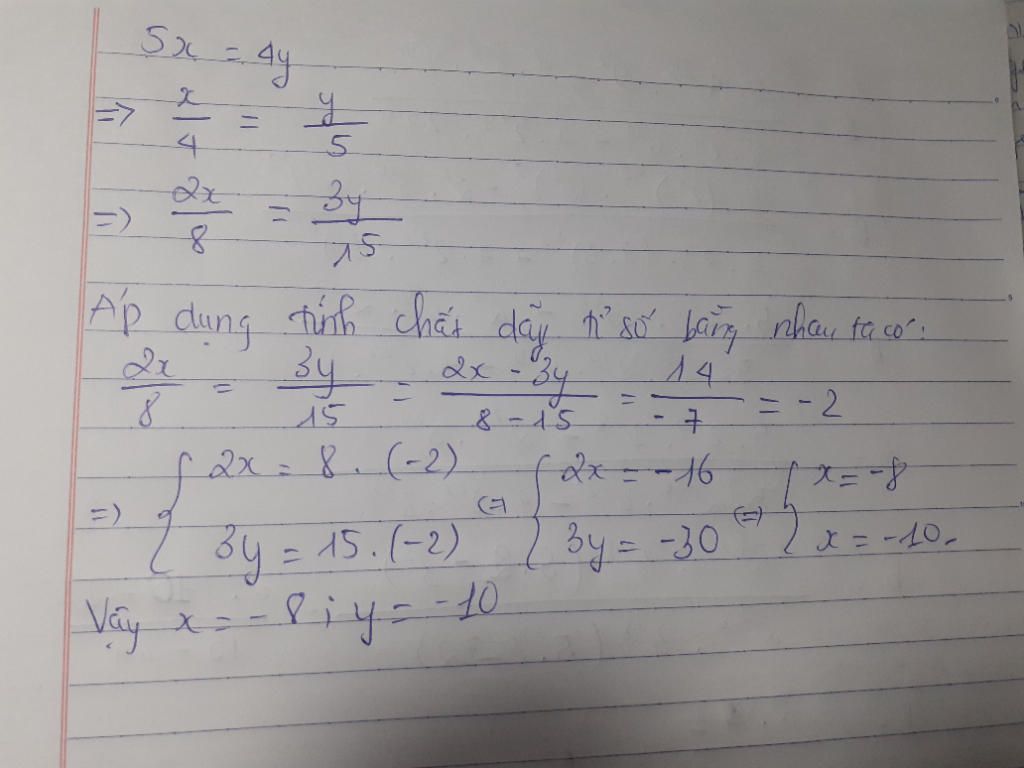 5x = 4y
=> x/4 = y/5
=> 2x/8 = 3y/15
Áp dụng tính chất dãy tỉ số bằng nhau ta có:
2x/8 = 3y/15 = 2x - 3y/8 - 15 = 14/-7 = -2
=> { 2x = 8 . (-2) (=) { 2x = -16 (=) { x = -8
3y = 15 . (-2) 3y = -30 x = -10.
Vậy x = -8 ; y = -10